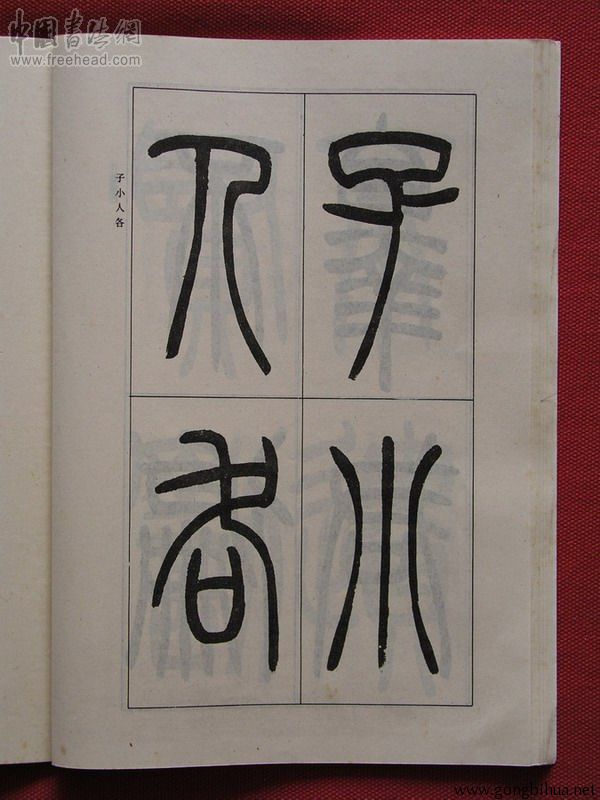 中国书法網
www.freehead.com
子小
人各
子小人各
www.gongbihua.net